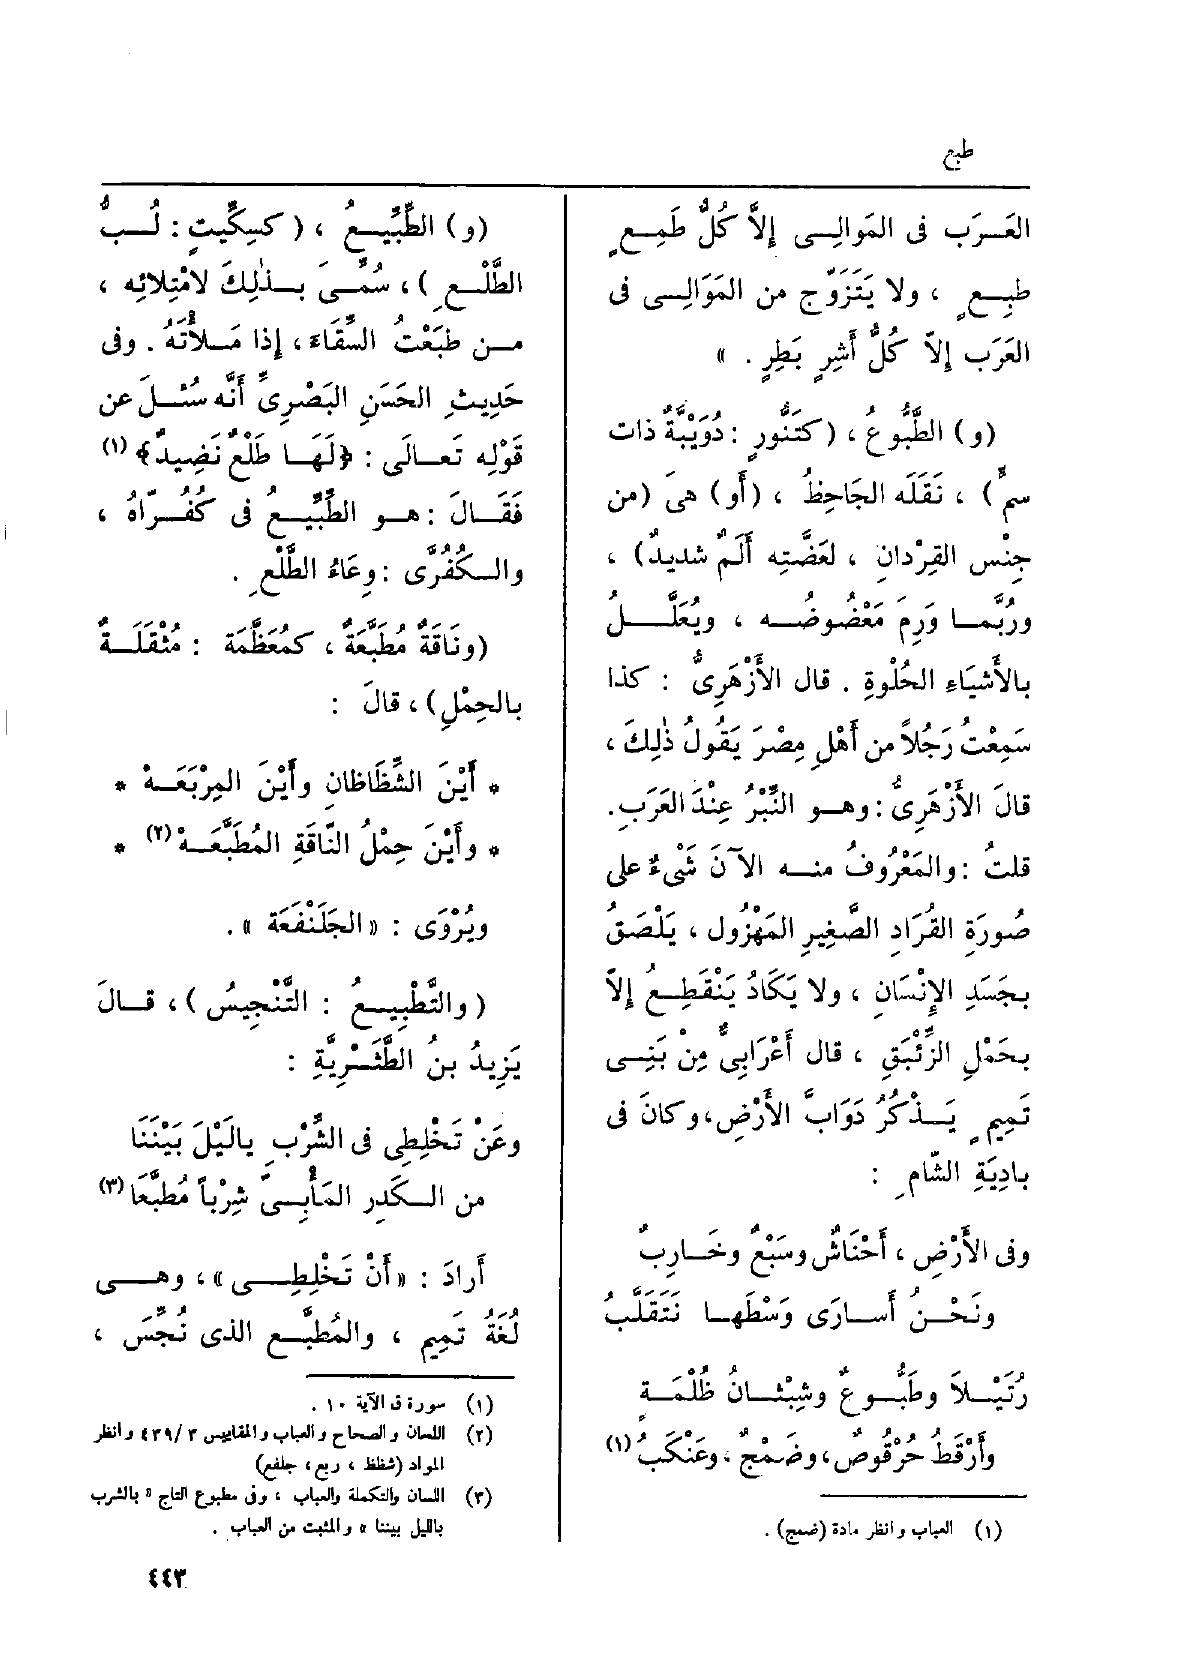 طبع
العَـرَب فى المَوالِـى إِلاَّ كُلُّ طَمِـعٍ
طَبِـعٍ ، ولا يَتَزَوَّج من المَوَالِـى فى
العَرَب إِلاّ كُلُّ أَشِرٍ بَطِرٍ . »
(و) الطَّبُّوعُ ، (كتَنُّورٍ : دُوَيْبَّةٌ ذات
سمٍّ) ، نَقَلَه الجَاحِظُ ، (أَو) هىَ (من
جِنْس القِرْدانِ ، لعَضَّتِه أَلَمٌ شديدٌ) ،
ورُبَّمـا وَرِمَ مَعْضُوضُـه ، ويُعَلَّـلُ
بالأَشيَاءِ الحُلْوةِ . قال الأَزْهَرِىُّ : كذا
سَمِعْتُ رَجُلاً من أَهْلِ مِصْرَ يَقُولُ ذٰلِكَ ،
قالَ الأَزْهَرِىُّ : وهـو النِّبْرُ عِنْدَ العَرَبِ.
قلتُ : والمَعْرُوفُ منـه الآنَ شَىْءٌ على
صُورَةِ القُرَادِ الصَّغِيرِ المَهْزُولِ ، يَلْصَقُ
بجَسَدِ الإِنْسَانِ ، ولا يَكَادُ يَنْقَطِـعُ إِلاّ
بحَمْلِ الزِّئْبَقِ ، قال أَعْرَابِىٌّ مِنْ بَنِـى
تَمِيمٍ يَـذْكُرُ دَوَابَّ الأَرْضِ، وكانَ فى
بادِيَةِ الشّامِ :
وفى الأَرْضِ ، أَحْنَاشٌ وسَبْعٌ وخَـارِبٌ
ونَحْـنُ أَسـارَى وَسْطَهـا نَتَقَلَّبُ
رُتَيْـلاَ وطَبُّـوعٌ وشِبْثـانُ ظُلْمَـةٍ
وأَرْقَطُ حُرْقُوصٌ، وضَمْجٌ ، وعَنْكَبُ (١)
(١) العباب وانظر مادة (ضمج) .
(و) الطِّبِّيـعُ ، (كسِكِّيتٍ : لُـبُّ
الطَّلْـعِ )، سُمِّـىَ بـذٰلِكَ لامْتِلائِه ،
مـن طَبَعْتُ السِّقَاءَ ، إِذا مَـلأْتَهُ . وفى
حَدِيثِ الحَسَنِ البَصْرِىِّ أَنَّه سُئـلَ عن
قَوْلِه تَعـالَى : ﴿لَهَـا طَلْعٌ نَضِيدٌ﴾ (١)
فَقَـالَ : هـو الطِّبِّيـعُ فى كُفُـرّاهُ ،
والـكُفُرَّى : وِعَاءُ الطَّلْعِ .
(ونَاقَةٌ مُطَبَّعَةٌ ، كمُعَظَّمَة : مُثْقَلَـةٌ
بالحِمْلِ) ، قالَ :
* أَيْنَ الشِّظَاظانِ وأَيْنَ المِرْبَعَـهْ *
* وأَيْنَ حِمْلُ النّاقَةِ المُطَبَّعَـهْ (٢) *
ويُرْوَى : « الجَلَنْفَعَة » .
( والتَّطْبِيـعُ : التَّنْجِيسُ ) ، قـالَ
يَزِيدُ بنُ الطَّثَـرِيَّةِ :
وعَنْ تَخْلِطِى فى الشُّرْبِ يالَيْلَ بَيْنَنَا
من الـكَدِرِ المَأْبِـىِّ شِرْباً مُطَبَّعَا (٣)
أَرادَ : « أَنْ تَخْلِطِـى » ، وهـى
لُغَةُ تَمِيمٍ ، والمُطَبَّـع الذى نُجِّسَ ،
(١) سورة ق الآية ١٠ .
(٢) اللسان والصحاح والعباب والمقاييس ٣ /٤٣٩ وانظر
المواد (شظظ ، ربع ، جلفع)
(٣) اللسان والتكملة والعباب ، وفى مطبوع التاج « بالشرب
بالليل بيننا » والمثبت من العباب .
٤٤٣